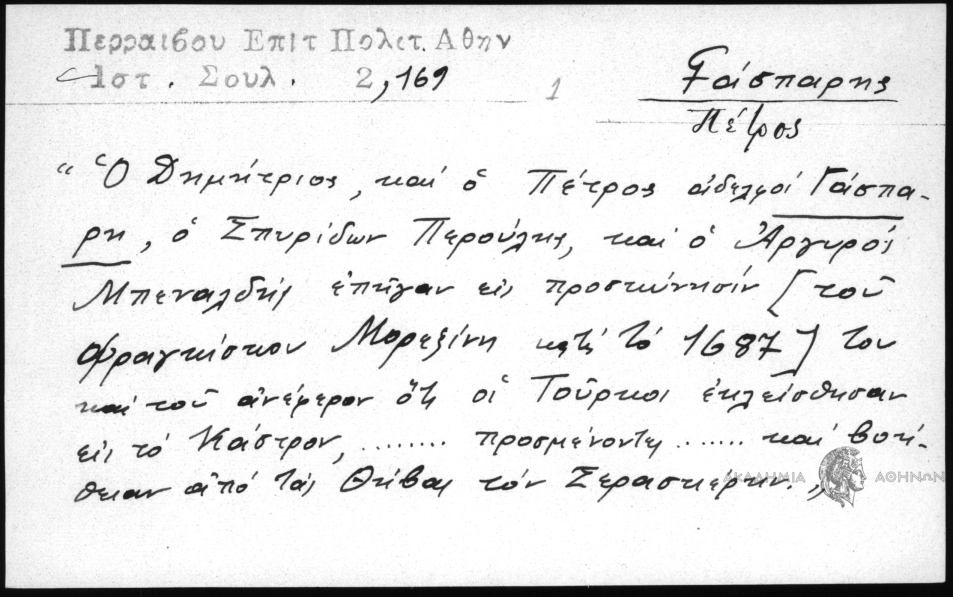 Περραιβου Επιτ Πολετ. Αθην
Ιστ. Σουλ. 2,169
1
Γάσπαρης
Πέτρος
"Ὁ Δημήτριος, καί ὁ Πέτρος ἀδελφοί Γάσπα-
ρη, ὁ Σπυρίδων Περούλης, καί ὁ Ἀργυρός
Μπεναλδής ἐπῆγαν εἰς προσκύνησίν [τοῦ
Φραγκίσκου Μορεζίνη κατά τό 1687] του
καί τοῦ ἀνέφερον ὅτι οἱ Τοῦρκοι ἐκλείσθησαν
εἰς τό Κάστρον, ........ προσμένοντες ....... καί βοή-
θειαν ἀπό τάς Θήβας τόν Σερασκέρην."
ΑΚΑΔΗΜΙΑ ΑΘΗΝΩΝ